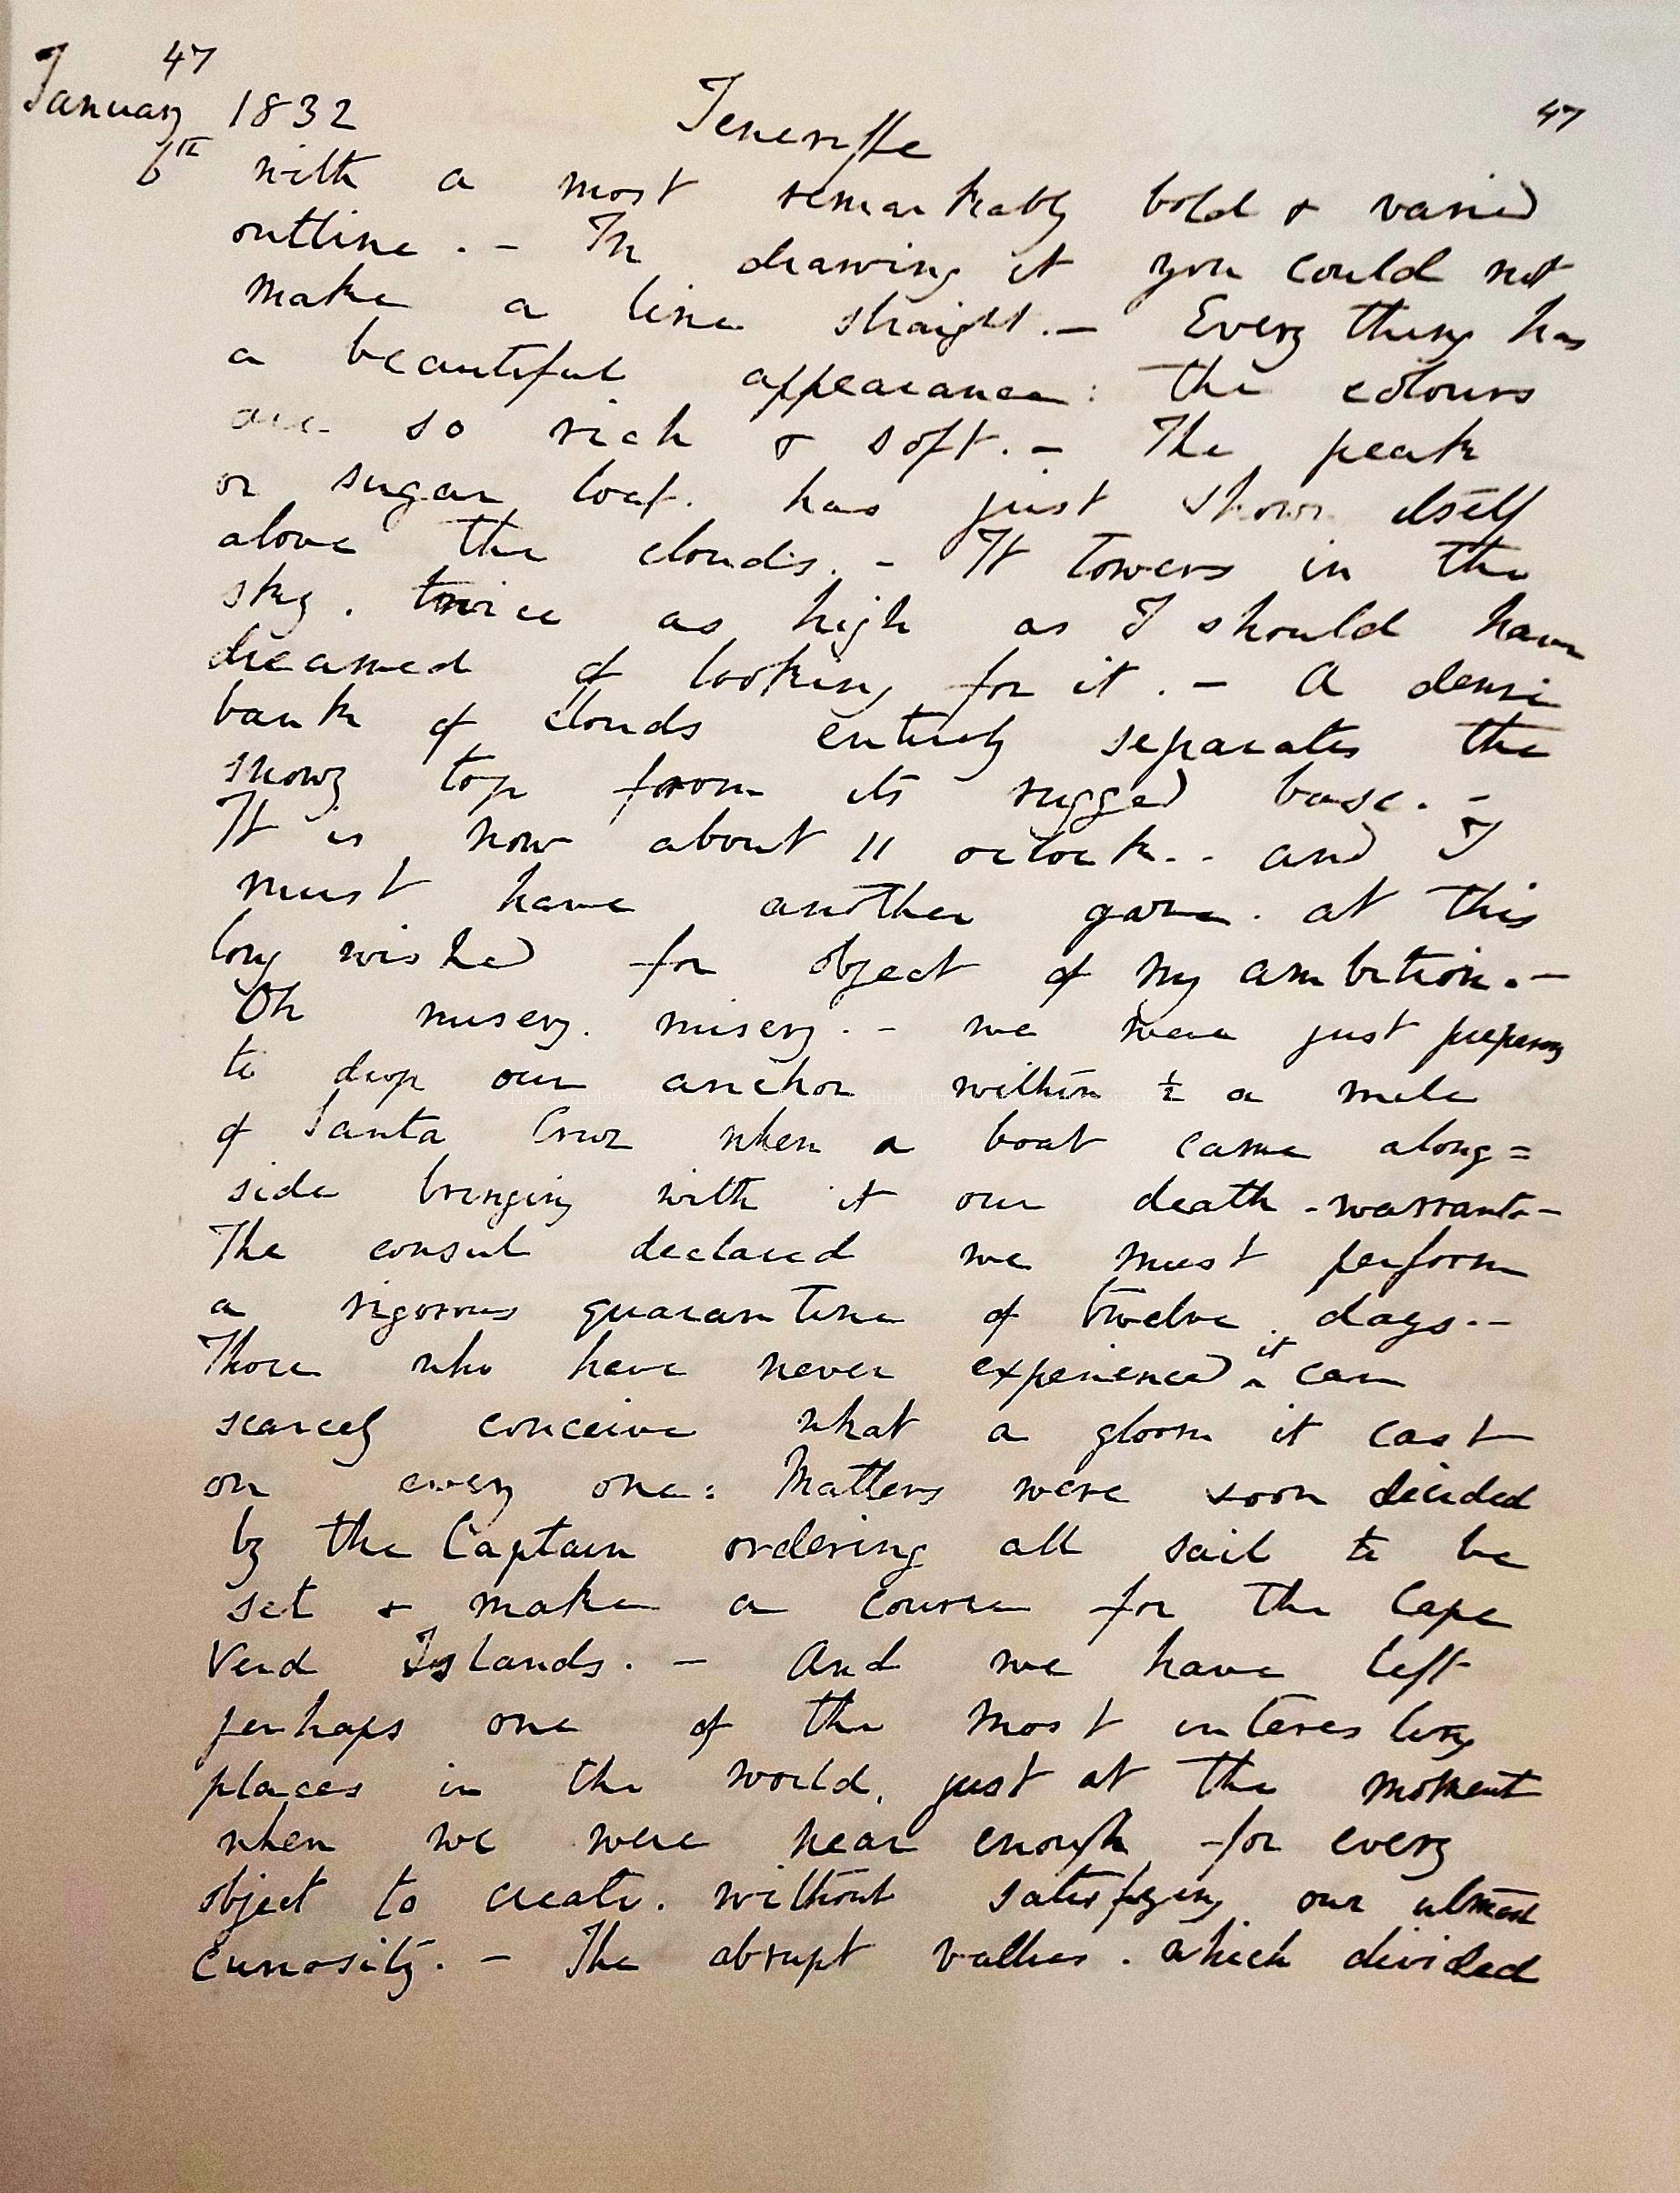 47
January 1832 Teneriffe 47
6th with a most remarkably bold & varied
outline. — In drawing it you could not
make a line straight. — Every thing has
a beautiful appearance: the colours
are so rich & soft. — The peak
or sugar loaf. has just shown itself
above the clouds. — It towers in the
sky. twice as high as I should have
dreamed of looking for it. — A dense
bank of clouds entirely separates the
snowy top from its rugged base. —
It is now about 11 oclock.. and I
must have another gaze. at this
long wished for object of my ambition. —
Oh misery. misery. — we were just preparing
to drop our anchor within ½ a mile
of Santa Cruz when a boat came along=
side bringing with it our death-warrant. —
The consul declared we must perform
a rigorous quarantine of twelve days. —
Those who have never experienced it can
scarcely conceive what a gloom it cast
on every one: Matters were soon decided
by the Captain ordering all sail to be
set & make a course for the Cape
Verd Islands. — And we have left
perhaps one of the most interesting
places in the world, just at the moment
when we were near enough for every
object to create. without satisfying our utmost
curiosity. — The abrupt vallies. which divided